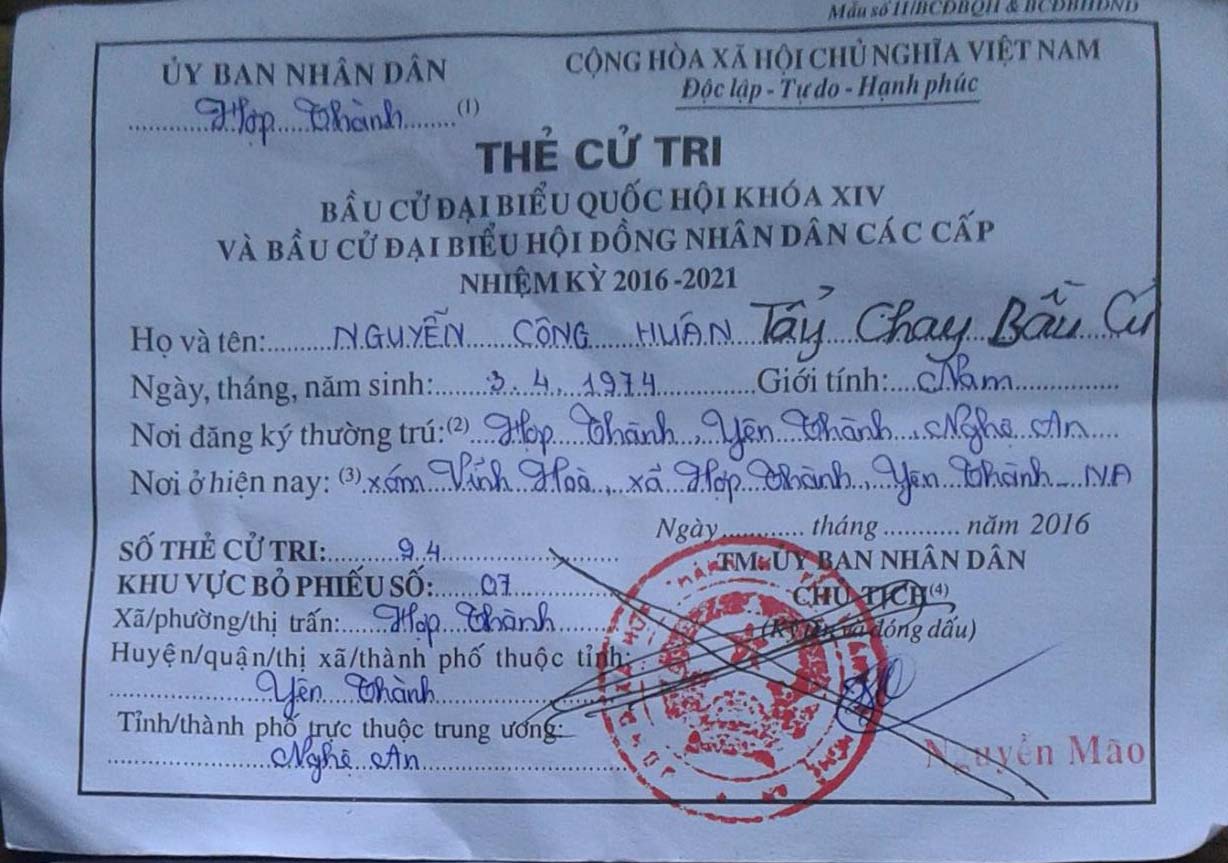 Mẫu số 11/BCĐBQH & BCĐBHĐND
ỦY BAN NHÂN DÂN
Hợp Thành (1)
CỘNG HÒA XÃ HỘI CHỦ NGHĨA VIỆT NAM
Độc lập - Tự do - Hạnh phúc
THẺ CỬ TRI
BẦU CỬ ĐẠI BIỂU QUỐC HỘI KHÓA XIV
VÀ BẦU CỬ ĐẠI BIỂU HỘI ĐỒNG NHÂN DÂN CÁC CẤP
NHIỆM KỲ 2016 -2021
Họ và tên: NGUYỄN CÔNG HUÂN Tẩy Chay Bầu Cử
Ngày, tháng, năm sinh: 3.4.1974 Giới tính: Nam
Nơi đăng ký thường trú: (2) Hợp Thành, Yên Thành, Nghệ An
Nơi ở hiện nay: (3) xóm Vĩnh Hoà, xã Hợp Thành, Yên Thành - NA
Ngày ........... tháng ........... năm 2016
SỐ THẺ CỬ TRI: 94
KHU VỰC BỎ PHIẾU SỐ: 07
Xã/phường/thị trấn: Hợp Thành
Huyện/quận/thị xã/thành phố thuộc tỉnh:
Yên Thành
Tỉnh/thành phố trực thuộc trung ương:
Nghệ An
TM. ỦY BAN NHÂN DÂN
CHỦ TỊCH (4)
(Ký tên và đóng dấu)
Nguyễn Mão